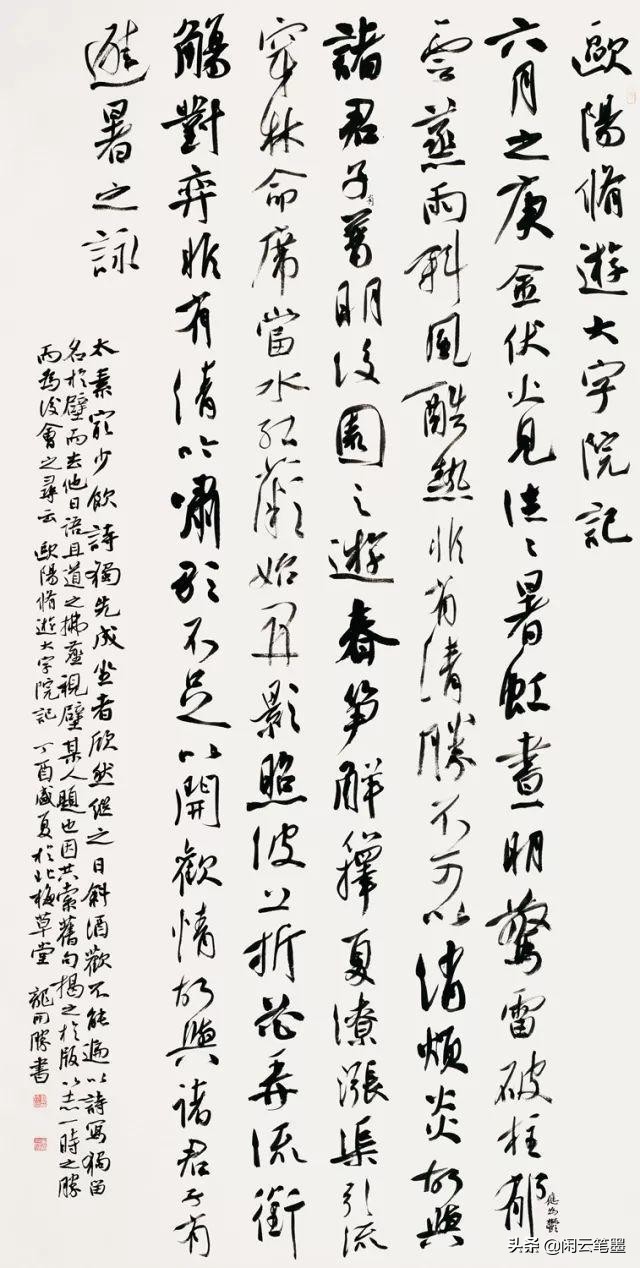 歐陽脩遊大字院記
六月之庚金伏火見往々暑虹晝明驚雷破柱郁
應為鬱
雲蒸雨斜風酷熱非有清勝不可以消煩炎故與
諸君子有普明後園之遊春笋解籜夏潦漲渠引流
穿林命席當水紅薇始開影照波上折花弄流銜
觴對弈非有清吟嘯歌不足以開歡情故與諸君子有
避暑之詠
太素最少飲詩獨先成坐者欣然繼之日斜酒歡不能遍以詩寫獨留
名於壁而去他日語且道之拂塵視壁某人題也因共索舊句揭之於版以志一時之勝
而為後會之尋云 歐陽脩遊大字院記 丁酉盛夏於北梅草堂 龍開勝書
头条 @闲云笔墨